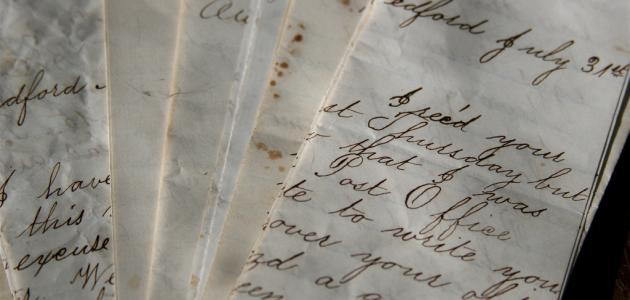 dford -
I have
this
excuse
We
Au
edford July 31st
I rec'd your
st Thursday but
r that I was
Post Office
te to write you
over your
nd a
een